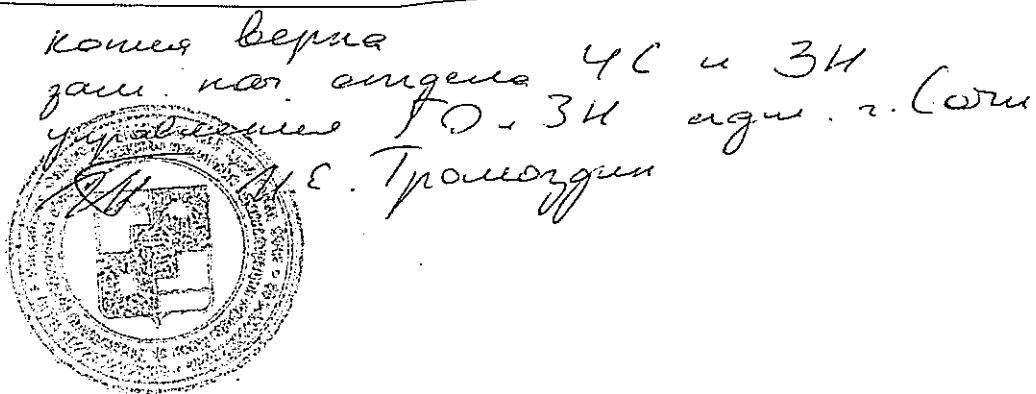 копия верна
зам. нач. отдела ЧС и ЗН
управления ГО и ЗН адм. г. Сочи
Н.Е. Громоздин